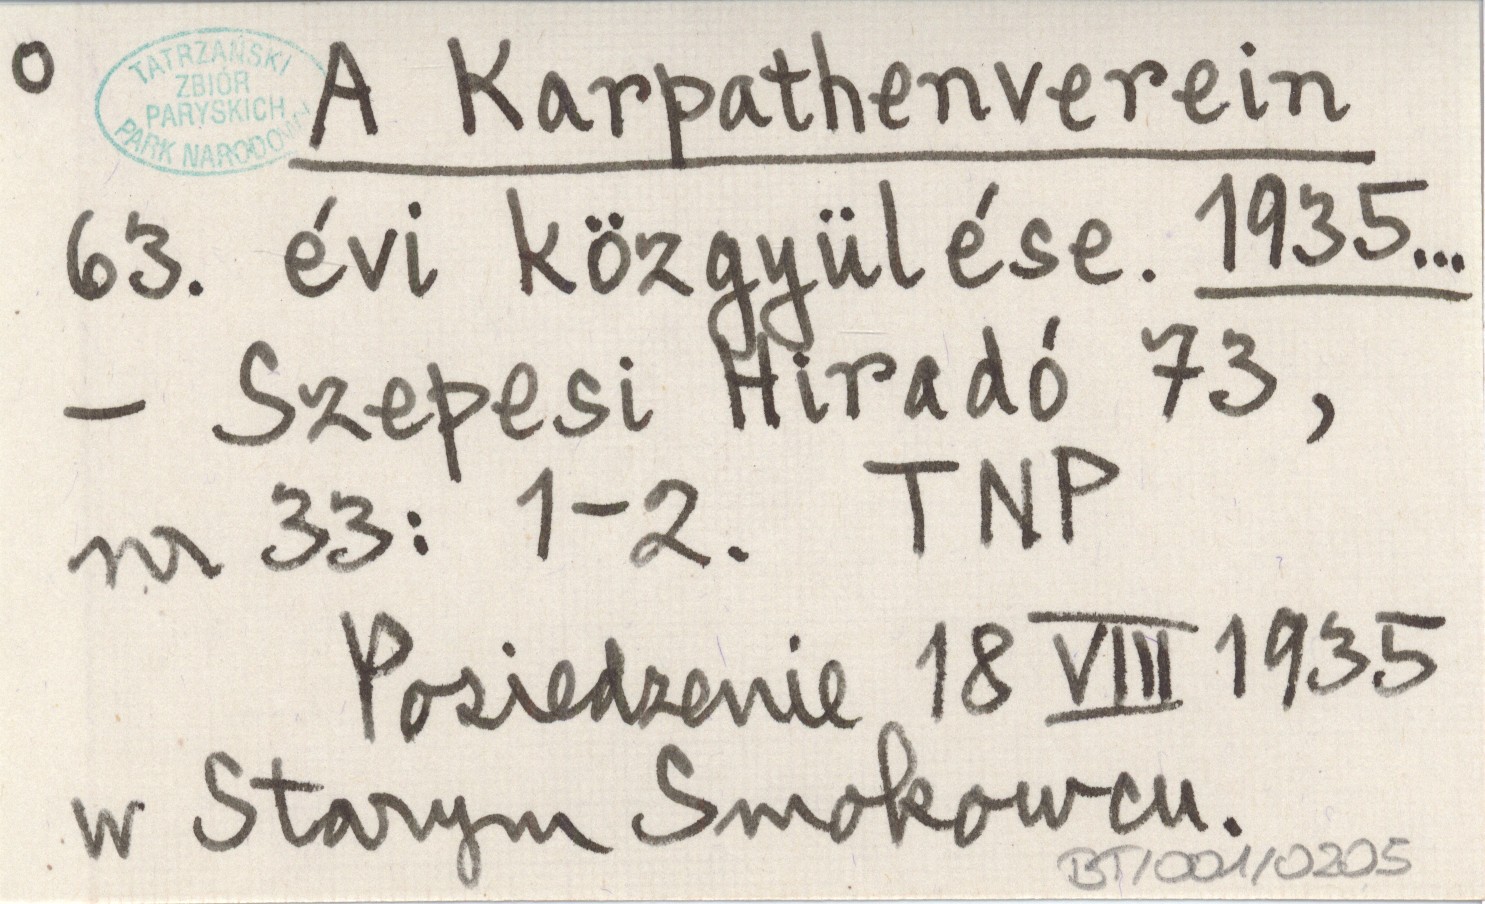 o
TATRZAŃSKI
ZBIÓR
PARYSKICH
PARK NARODOWY
A Karpathenverein
63. évi közgyülése. 1935...
– Szepesi Hiradó 73,
nr 33: 1–2. TNP
Posiedzenie 18 VIII 1935
w Starym Smokowcu.
BT/001/0205